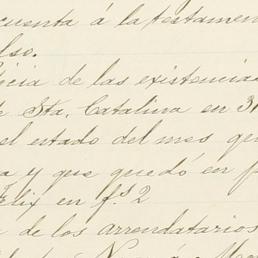 cuenta á la testamen
lso.
icia de las existencias
de Sta. Catalina en 31
el estado del mes que
a y que quedó en p
Felix en f.s 2
de los arrendatarios